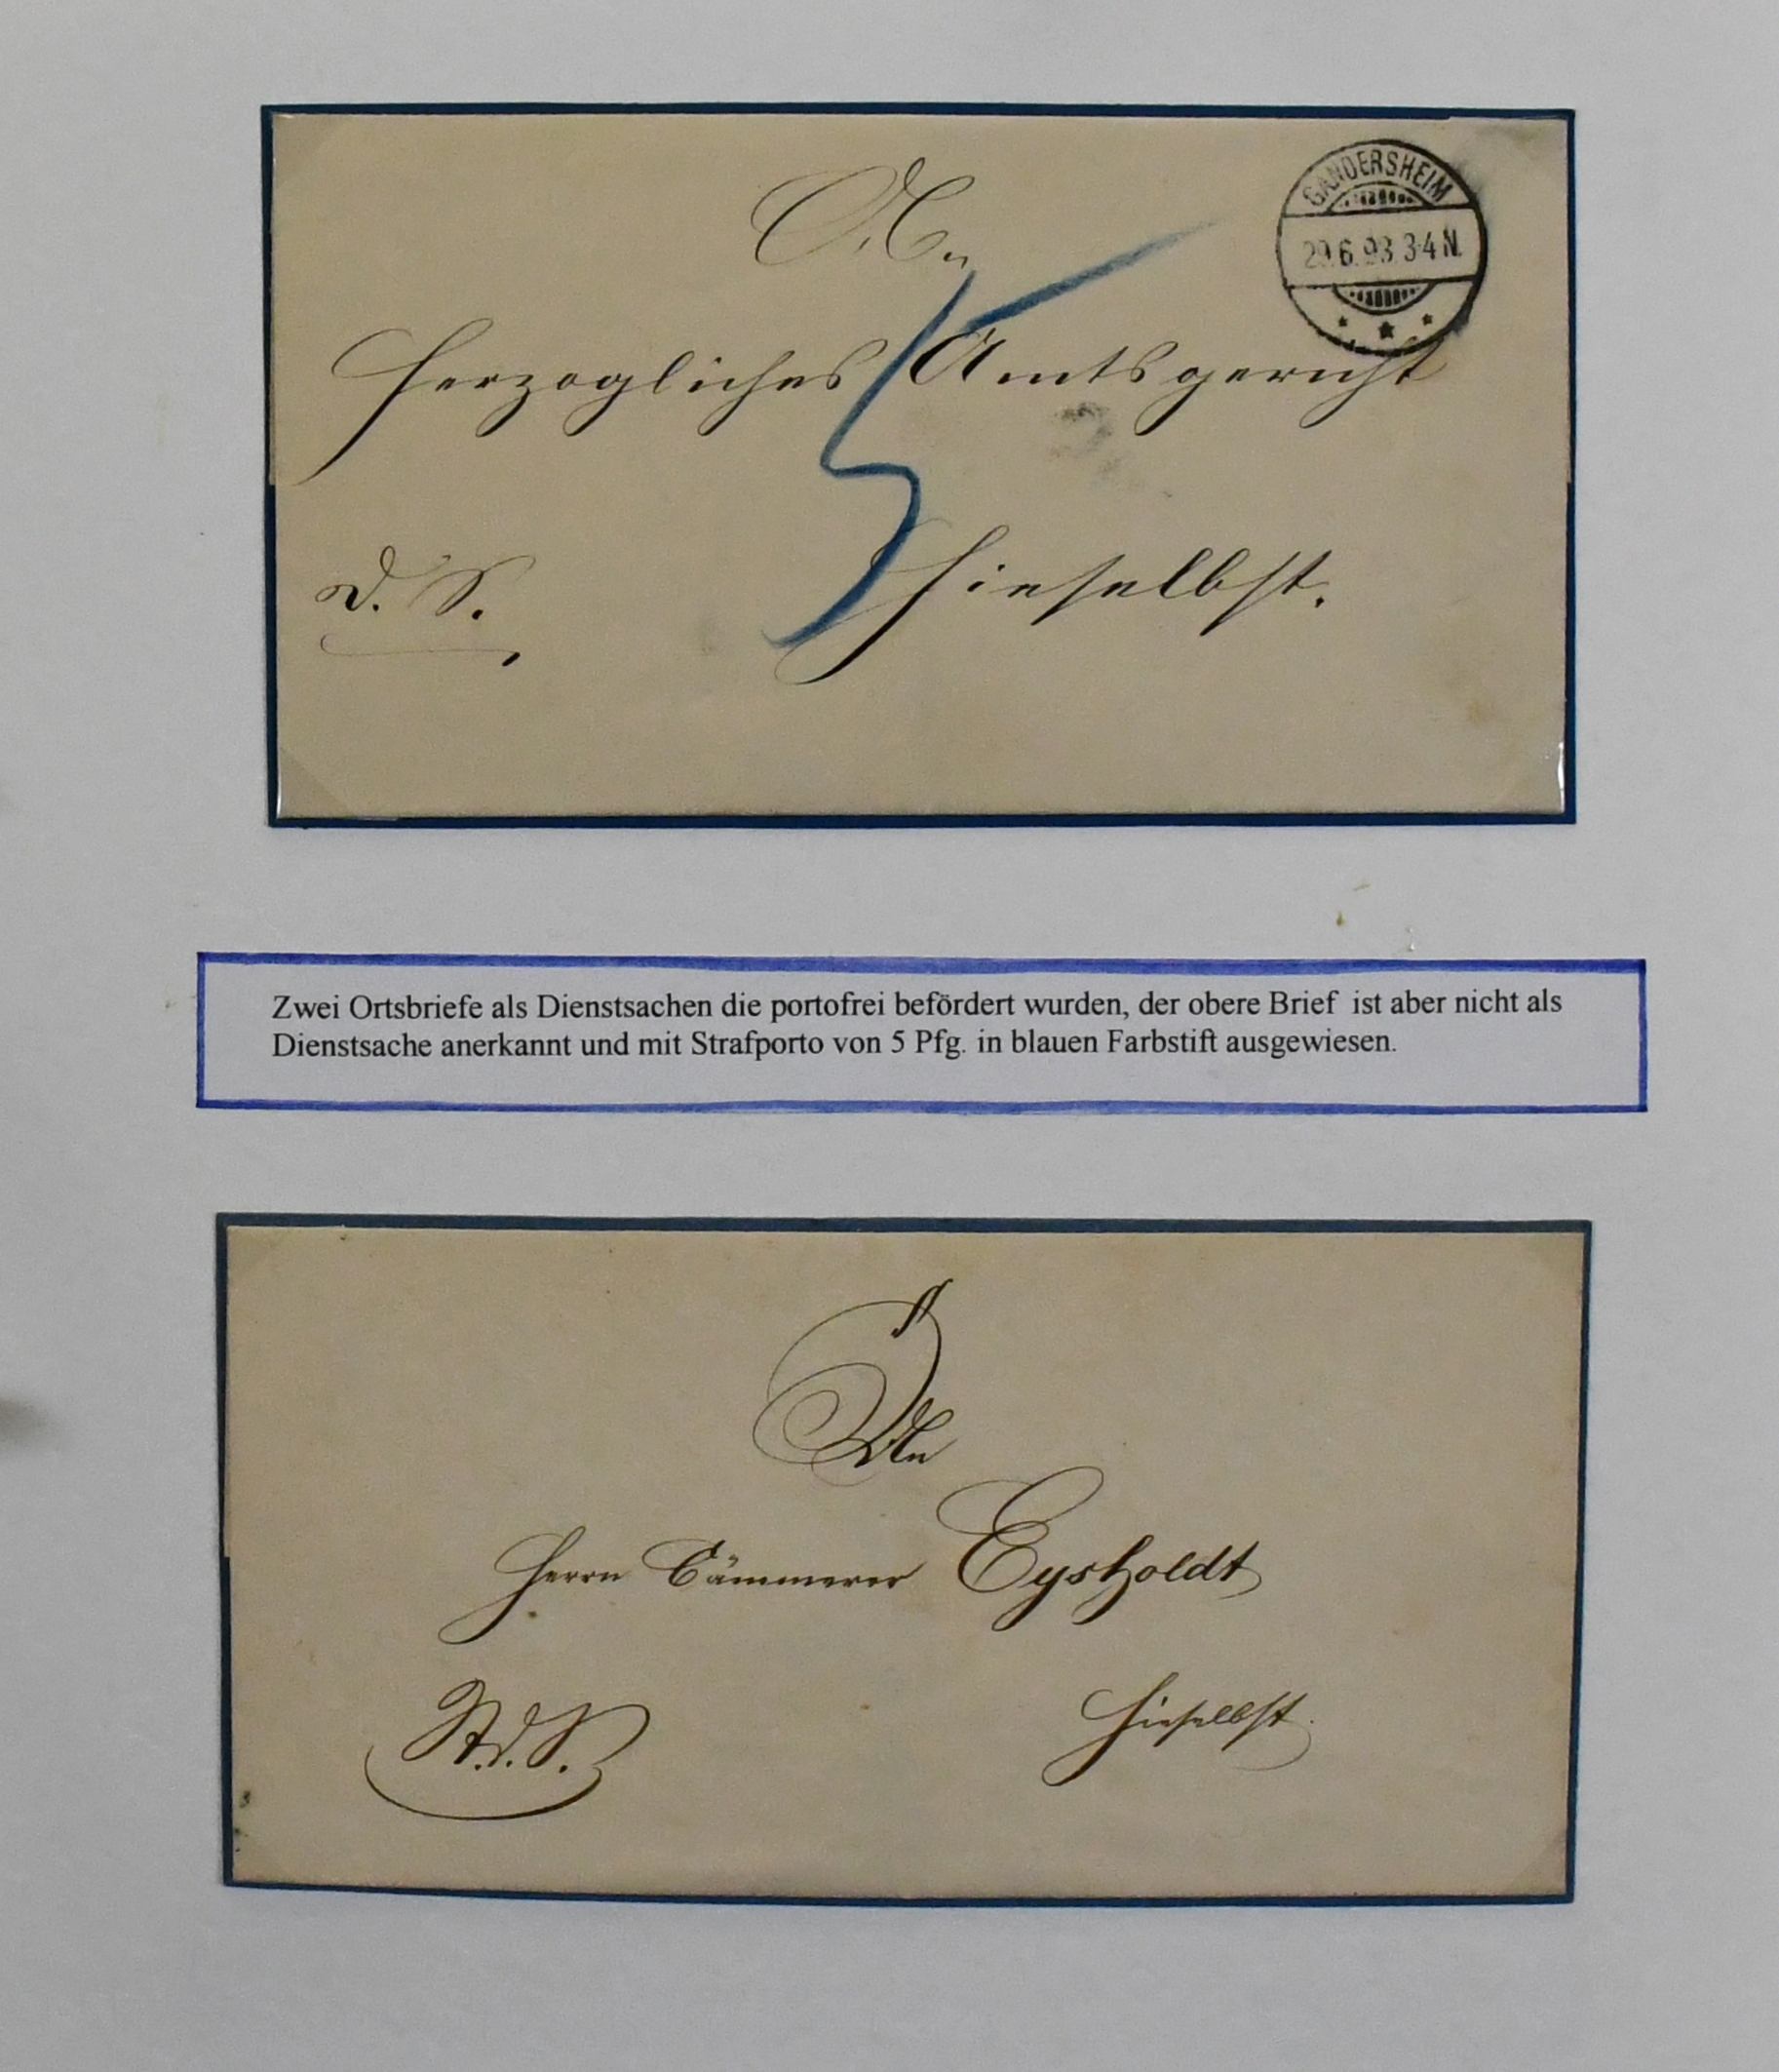 An
GANDERSHEIM
29.6.93.3-4N.
Herzogliches Amtsgericht
5
D. S.
hieselbst.
Zwei Ortsbriefe als Dienstsachen die portofrei befördert wurden, der obere Brief ist aber nicht als
Dienstsache anerkannt und mit Strafporto von 5 Pfg. in blauen Farbstift ausgewiesen.
An
Herrn Cämmerer Eysholdt
St.d.S.
hieselbst.